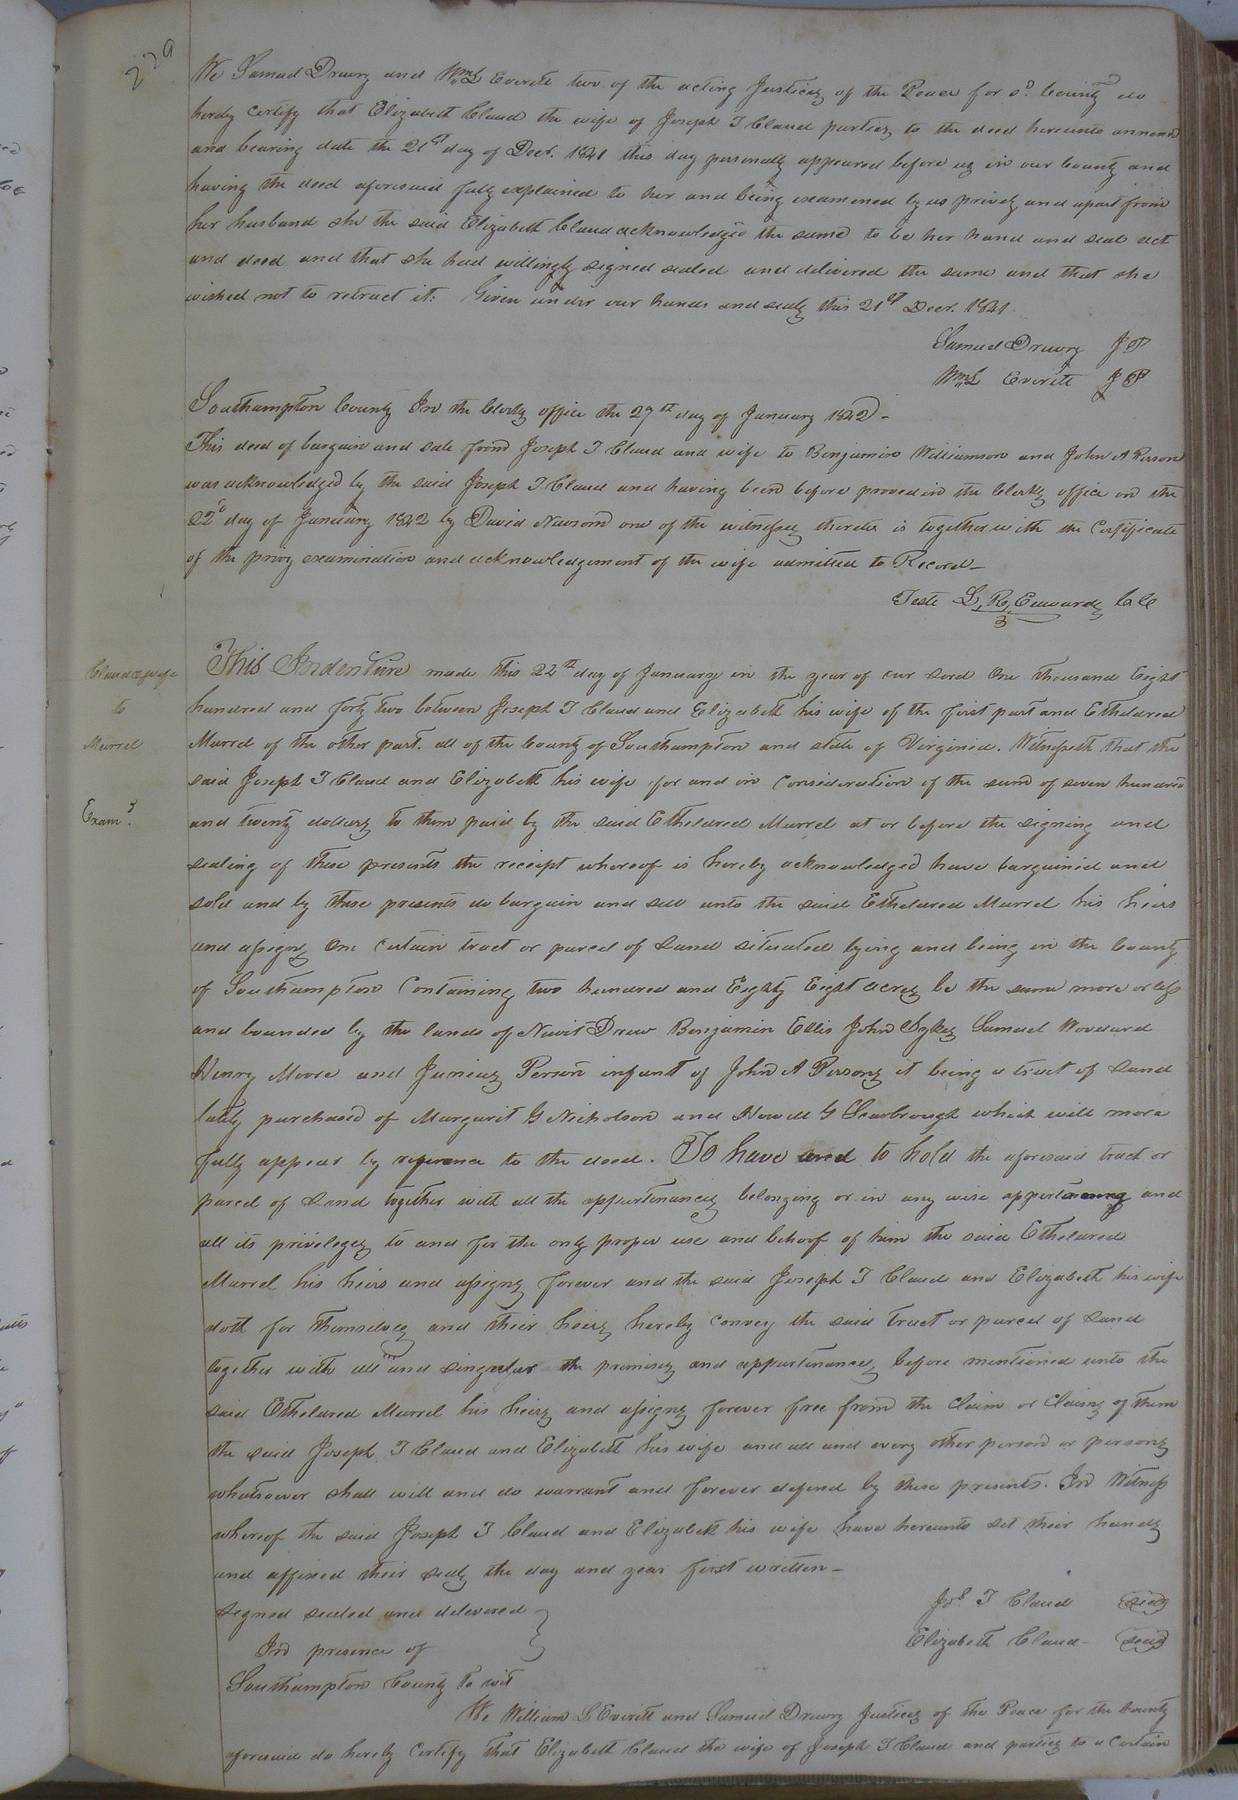 239
We Samuel Drewry and Wm L Everitt two of the acting Justices of the Peace for sd. County do
hereby certify that Elizabeth Claud the wife of Joseph T Claud parties to the deed hereunto annexed
and bearing date the 21st day of Decr. 1841 this day personally appeared before us in our County and
having the deed aforesaid fully explained to her and being examined by us privily and apart from
her husband she the said Elizabeth Claud acknowledged the same to be her hand and seal act
and deed and that she had willingly signed sealed and delivered the same and that she
wished not to retract it. Given under our hands and seals this 21st Decr. 1841.
Samuel Drewry JP
Wm L Everitt JP
Southampton County In the Clerks office the 27th day of January 1842-
This deed of bargain and sale from Joseph T Claud and wife to Benjamin Williamson and John A Person
was acknowledged by the said Joseph T Claud and having been before proved in the Clerks office on the
22d day of January 1842 by David Newsom one of the witnesses thereto is together with the Certificate
of the privy examination and acknowledgement of the wife admitted to Record-
Teste L. R. Edwards CC
Claud & wife
to
Murrel
Examd.
This Indenture made this 22th day of January in the year of our Lord One thousand Eight
hundred and forty two between Joseph T Claud and Elizabeth his wife of the first part and Etheldred
Murrel of the other part. all of the County of Southampton and state of Virginia. Witnesseth that the
said Joseph T Claud and Elizabeth his wife for and in Consideration of the sum of seven hundred
and twenty dollars to them paid by the said Etheldred Murrel at or before the signing and
sealing of these presents the receipt whereof is hereby acknowledged have bargained and
sold and by these presents do bargain and sell unto the said Etheldred Murrel his heirs
and assigns One certain tract or parcel of Land situated lying and being in the County
of Southampton Containing two hundred and Eighty Eight acres be the same more or less
and bounded by the lands of Newit Drew Benjamin Ellis John Sykes Samuel Woodard
Henry Moore and Junius Person infant of John A Persons it being a tract of Land
lately purchased of Margaret G Nicholson and Howell G Scarbrough which will more
fully appear by reference to the deed. To have and to hold the aforesaid tract or
parcel of Land together with all the appurtenances belonging or in any wise appertaining and
all its privileges to and for the only proper use and behoof of him the said Etheldred
Murrel his heirs and assigns forever and the said Joseph T Claud and Elizabeth his wife
doth for themselves and their heirs hereby convey the said tract or parcel of Land
together with all and singular the premises and appurtenances before mentioned unto the
said Etheldred Murrel his heirs and assigns forever free from the Claim or Claims of them
the said Joseph T Claud and Elizabeth his wife and all and every other person or persons
whatsoever shall will and do warrant and forever defend by these presents. In Witness
whereof the said Joseph T Claud and Elizabeth his wife have hereunto set their hands
and affixed their seals the day and year first written-
Signed sealed and delivered
In presence of
Jos T Claud seal
Elizabeth Claud seal
Southampton County To wit
We William L Everitt and Samuel Drewry Justices of the Peace for the County
aforesaid do hereby Certify that Elizabeth Claud the wife of Joseph T Claud and parties to a Certain